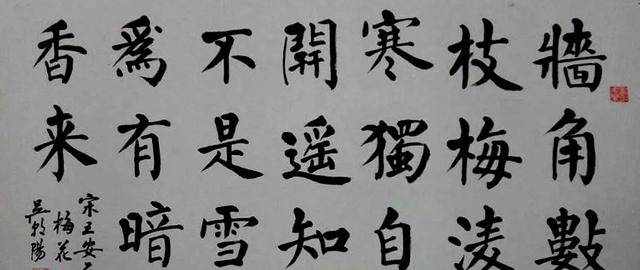 牆角數
枝梅凌
寒獨自
開遥知
不是雪
爲有暗
香来
宋王安
梅花